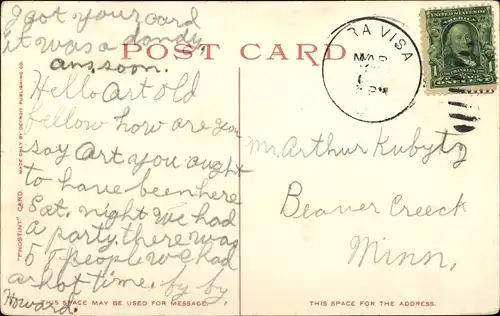 I got your card
it was a dandy,
ans, soon.
POST CARD
Hello Art old
fellow how are you
say Art you ought
to have been here
Sat. night we had
a party, there was
57 people we had
a hot time. by by,
Howard.
THIS SPACE MAY BE USED FOR MESSAGE.
"PHOSTINT" CARD
MADE ONLY BY DETROIT PUBLISHING CO.
RA VISA
MAR
Mr Arthur Kubytz
Beaver Creeck
Minn.
THIS SPACE FOR THE ADDRESS.